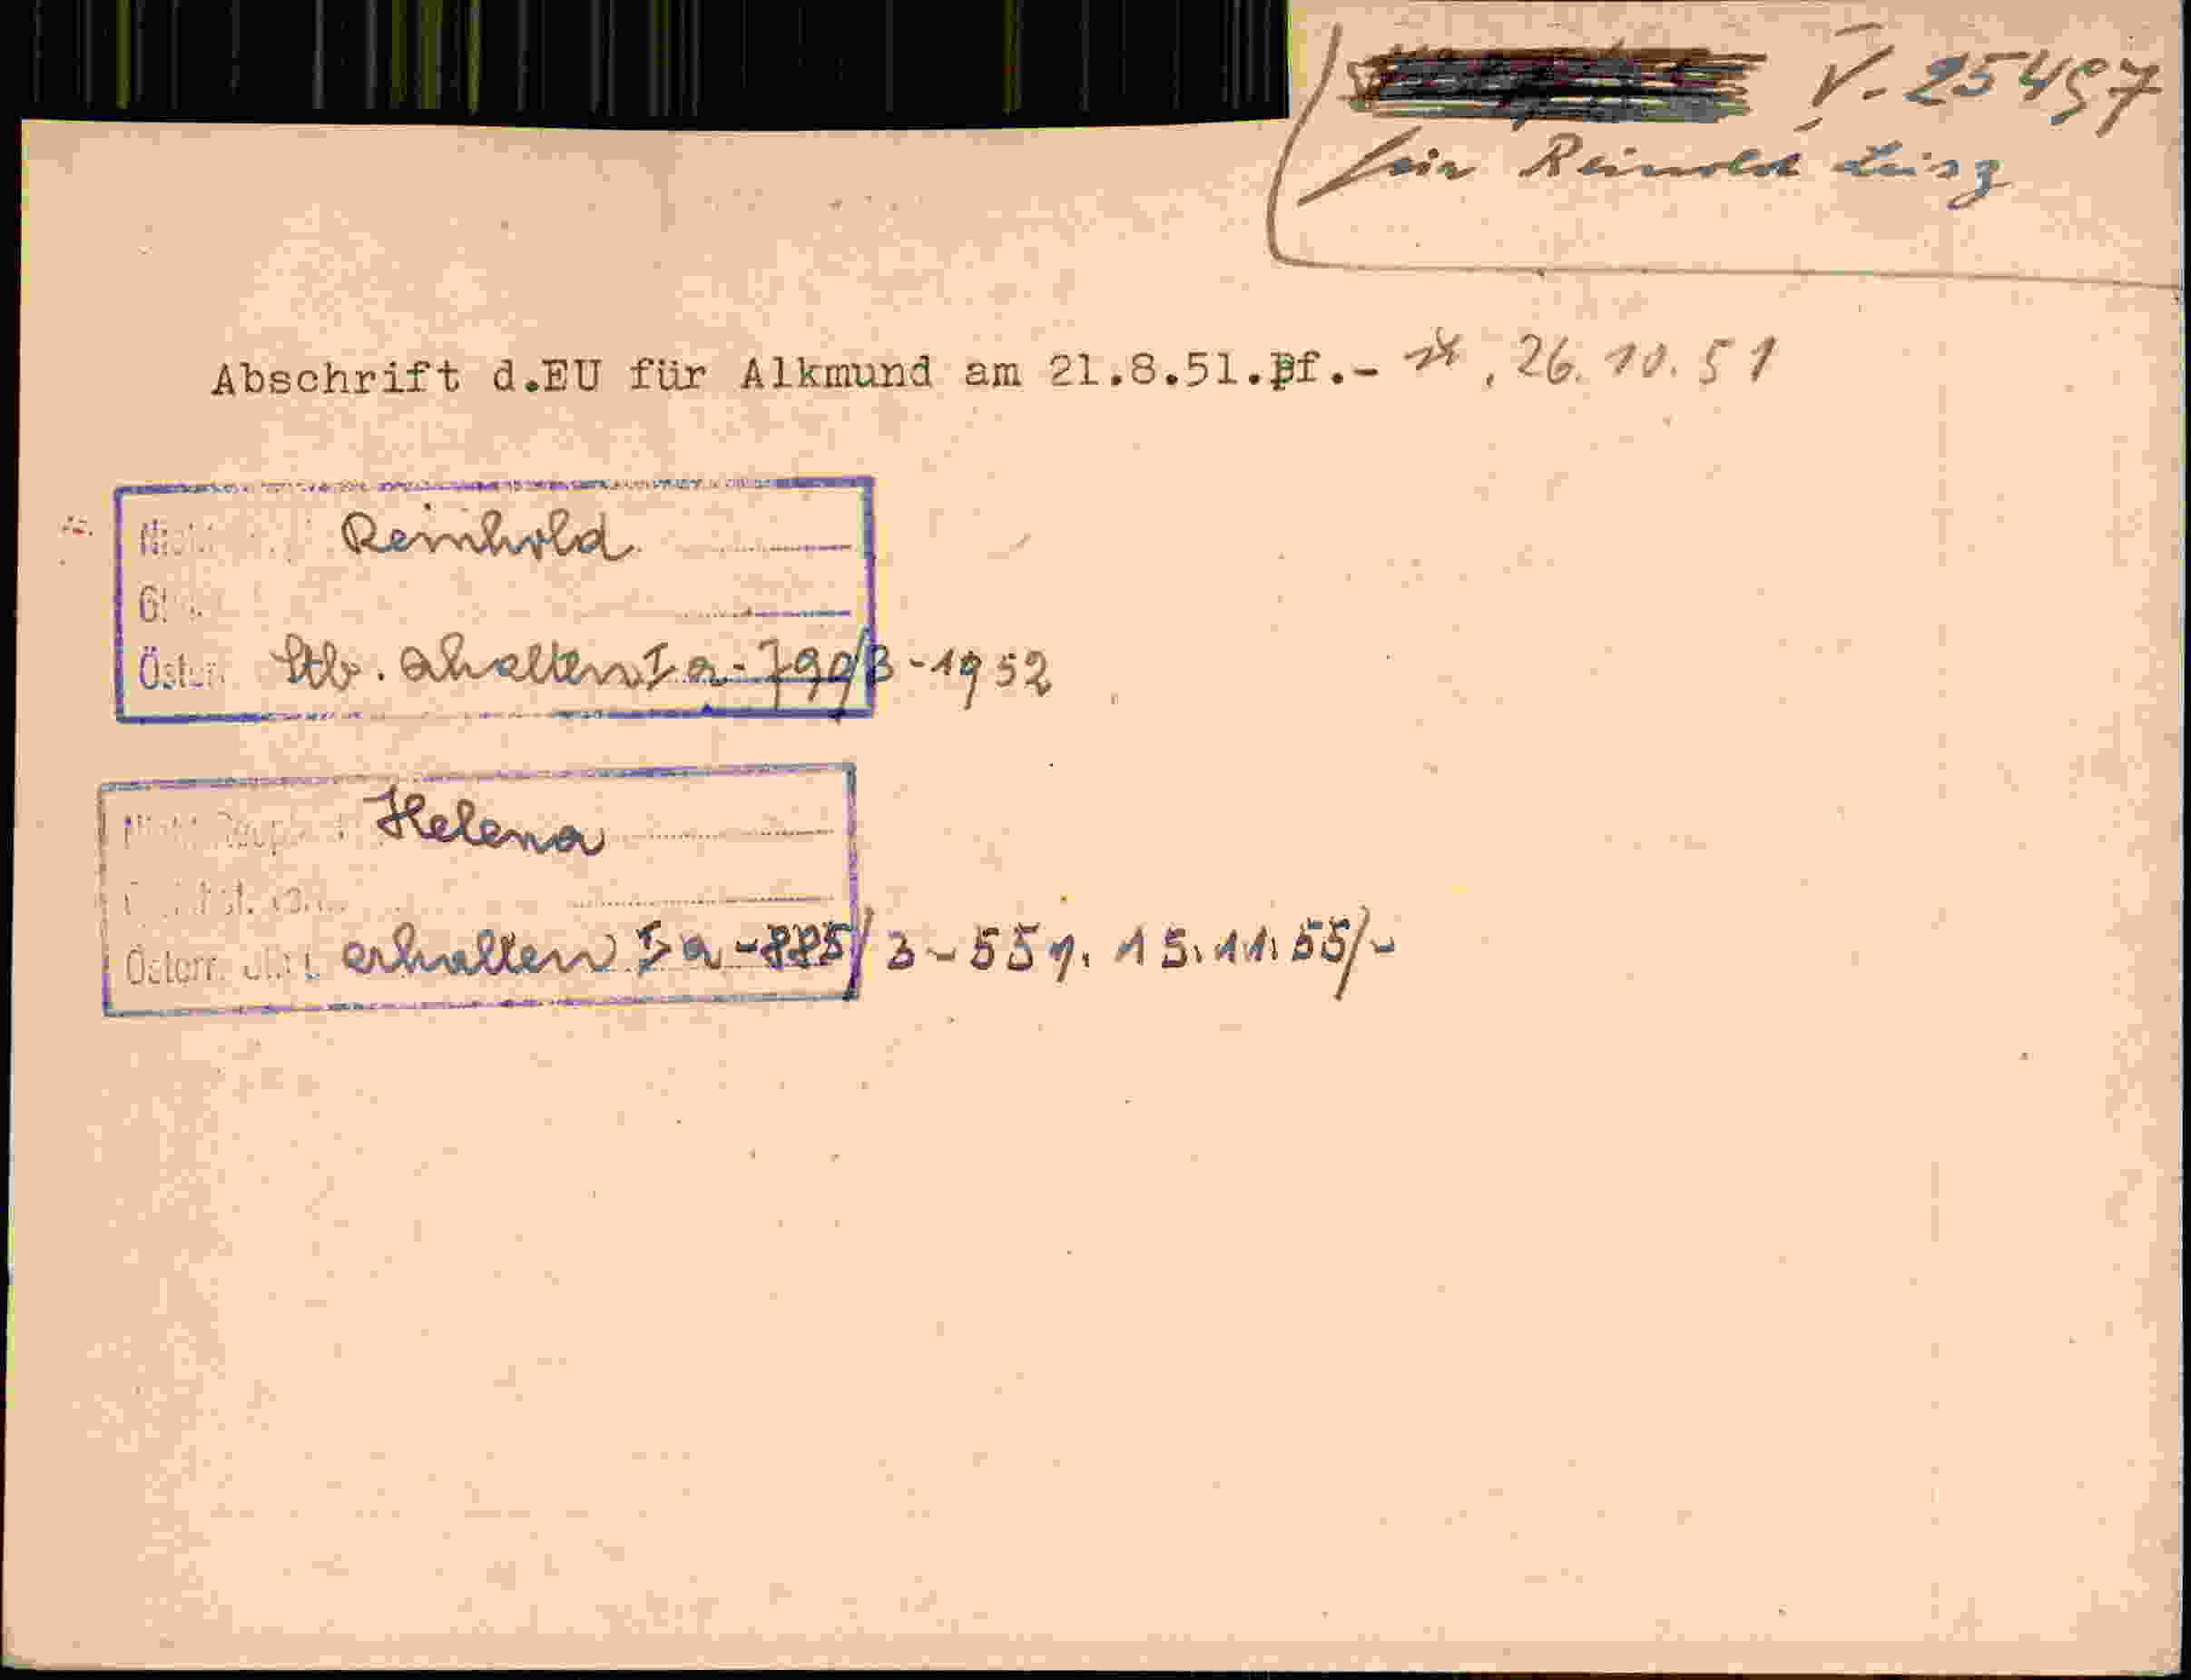 V. 25497
für Reinold Leisz
Abschrift d.EU für Alkmund am 21.8.51.Pf.- , 26.10.51
Reinhold
Österr. Stb. erhalten I a - 799/3 - 1952
Helena
Österr. erhalten I a - 885/3 - 551. 15.11.55/-